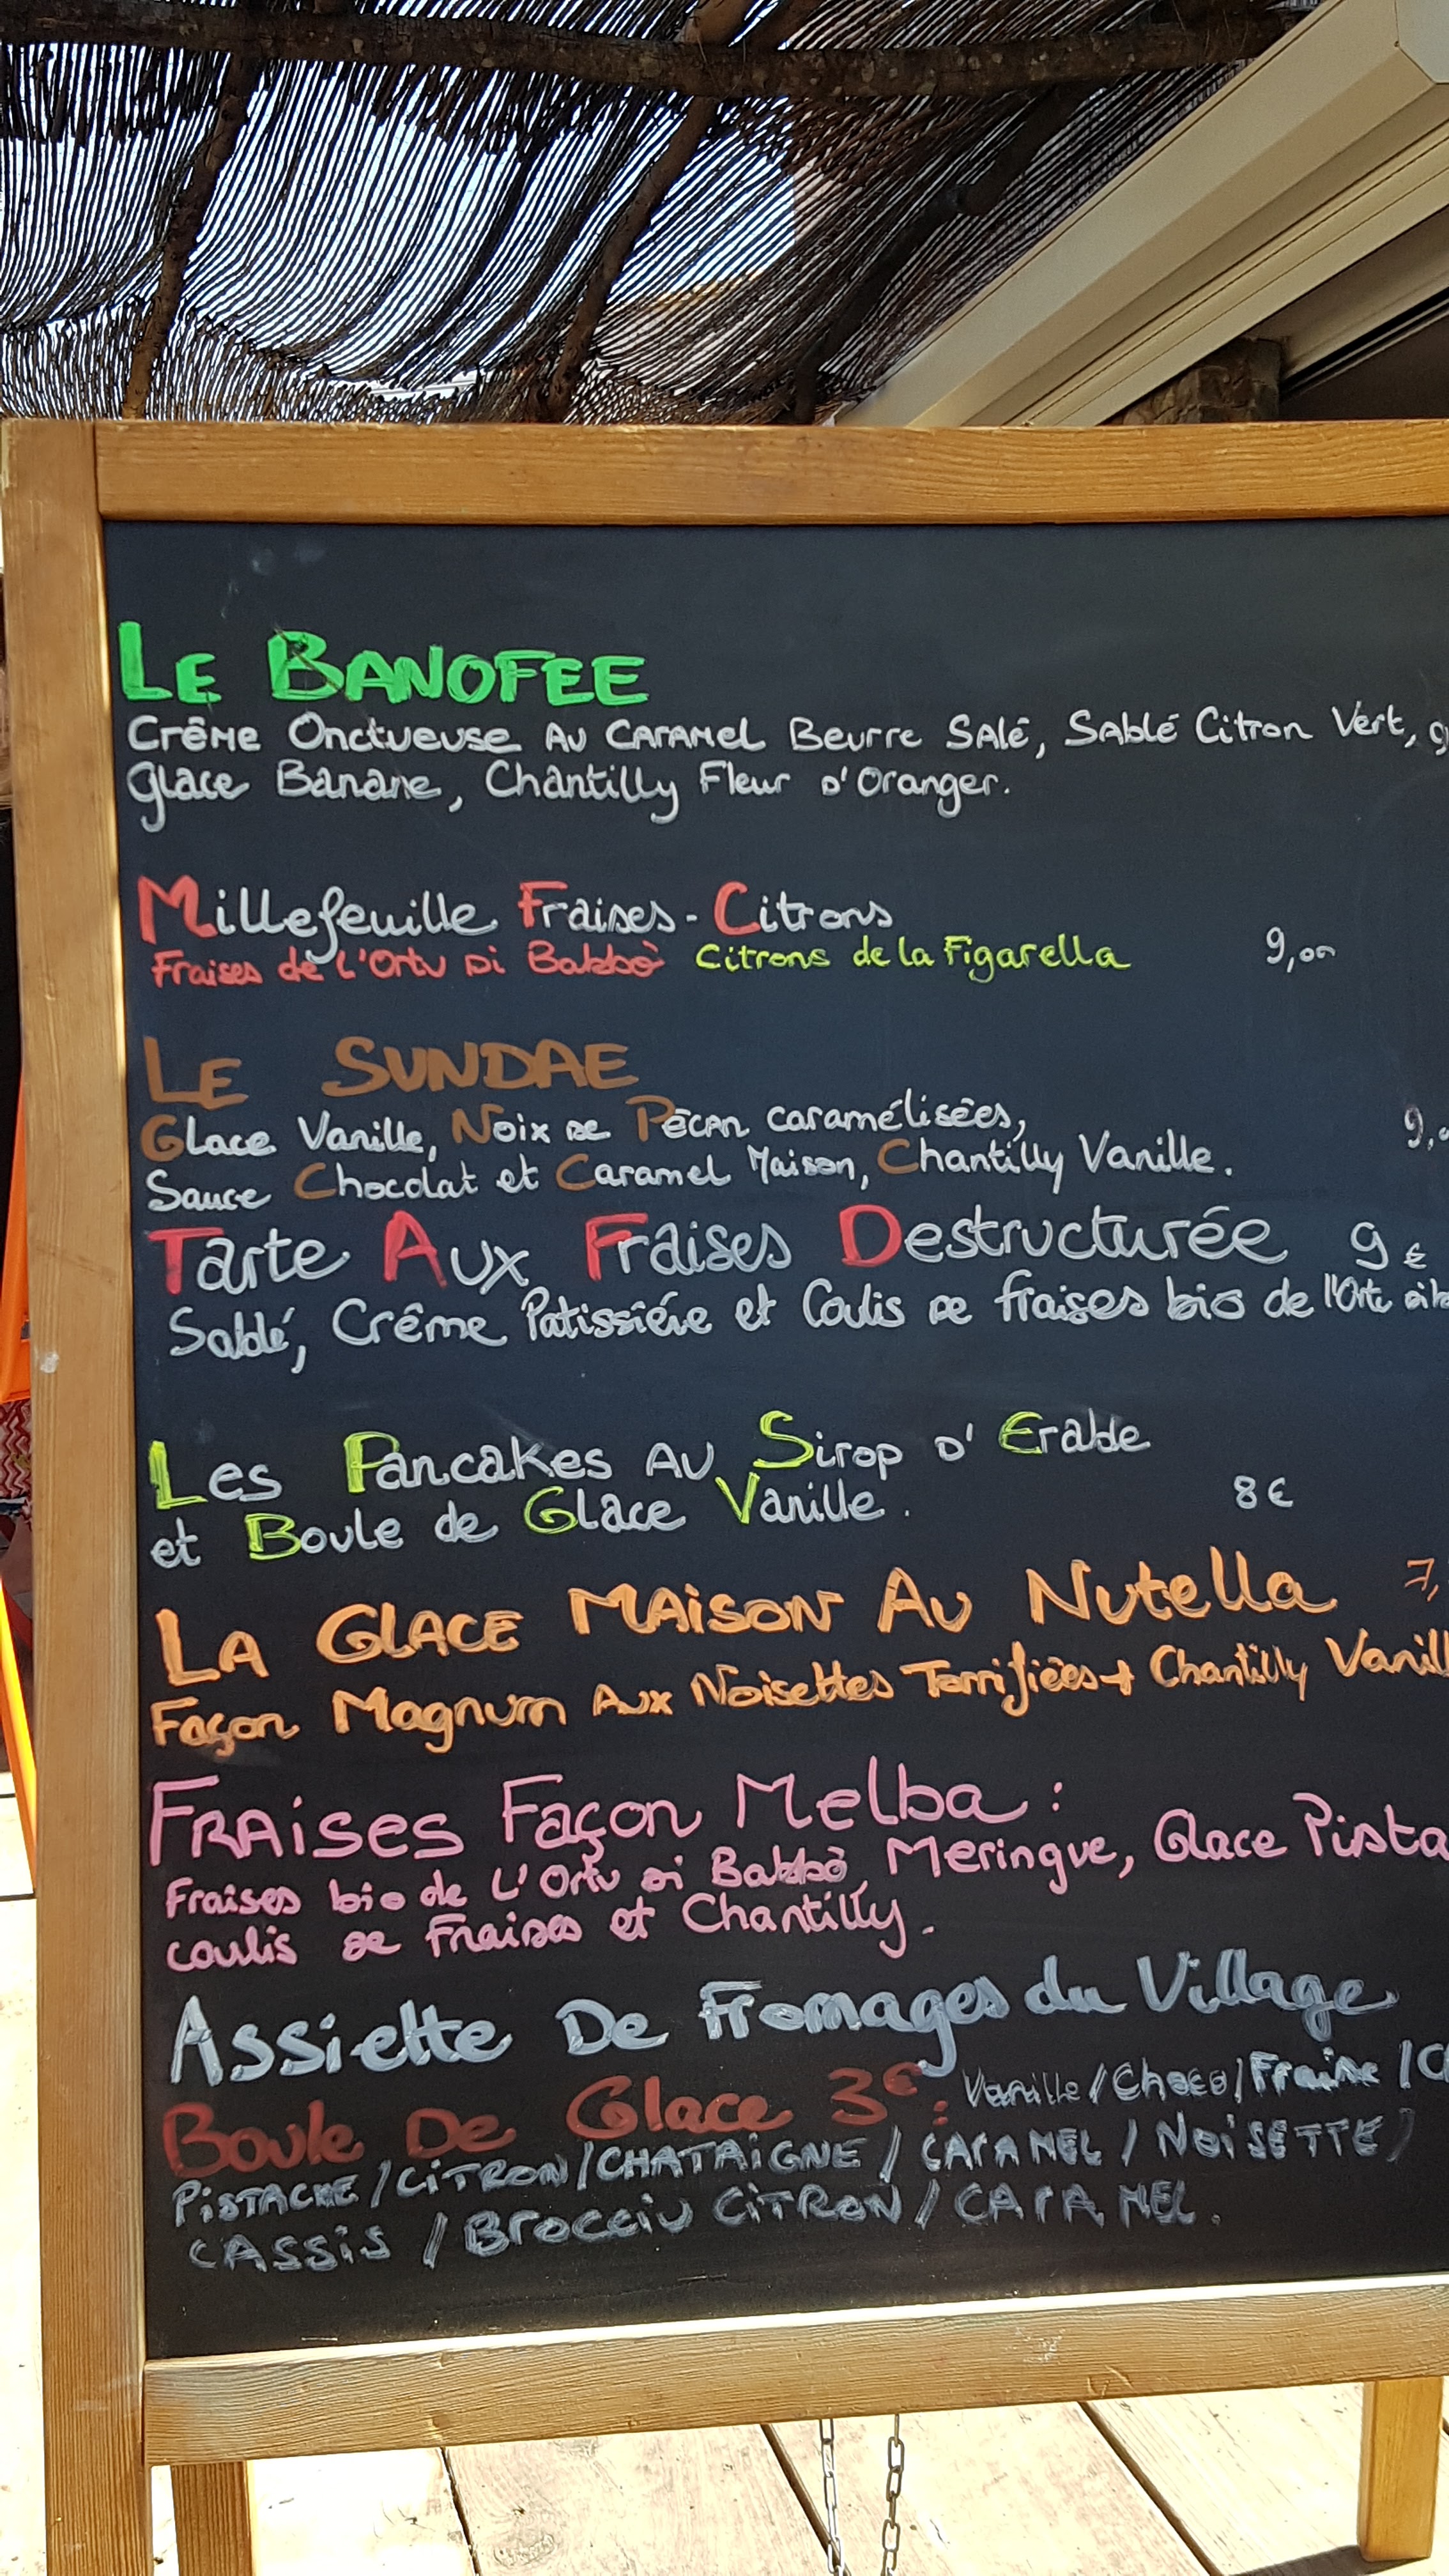 LE BANOFEE
Crême Onctueuse AU CARAMEL Beurre SAlé, SAblé Citron Vert,
glace Banane, Chantilly Fleur D'Oranger.
Millefeuille Fraises-Citrons
Fraises de L'Ortu Di Babbò Citrons de la Figarella 9,00
LE SUNDAE
Glace Vanille, Noix De Pécan caramélisées, 9,
Sauce Chocolat et Caramel Maison, Chantilly Vanille.
Tarte Aux Fraises Destructurée 9€
Sablé, Crême Patissiére et Coulis De fraises bio de l'Ortu
Les Pancakes AU Sirop D' Erable
et Boule de Glace Vanille. 8€
LA GLACE MAISON AU Nutella 7,
Façon Magnum Aux Noisettes Torrifiées + Chantilly Vanill
FRAises Façon Melba :
Fraises bio de L'Ortu Di Babbò, Meringue, Glace Pista
coulis De Fraises et Chantilly.
Assiette De Fromages du Village
Boule De Glace 3€: Vanille/Choco/Fraise/
PiSTACHE/CiTRON/CHATAiGNE/CARAMEL/NoiSETTE/
CASSiS/BrocciU CiTRON/CARAMEL.